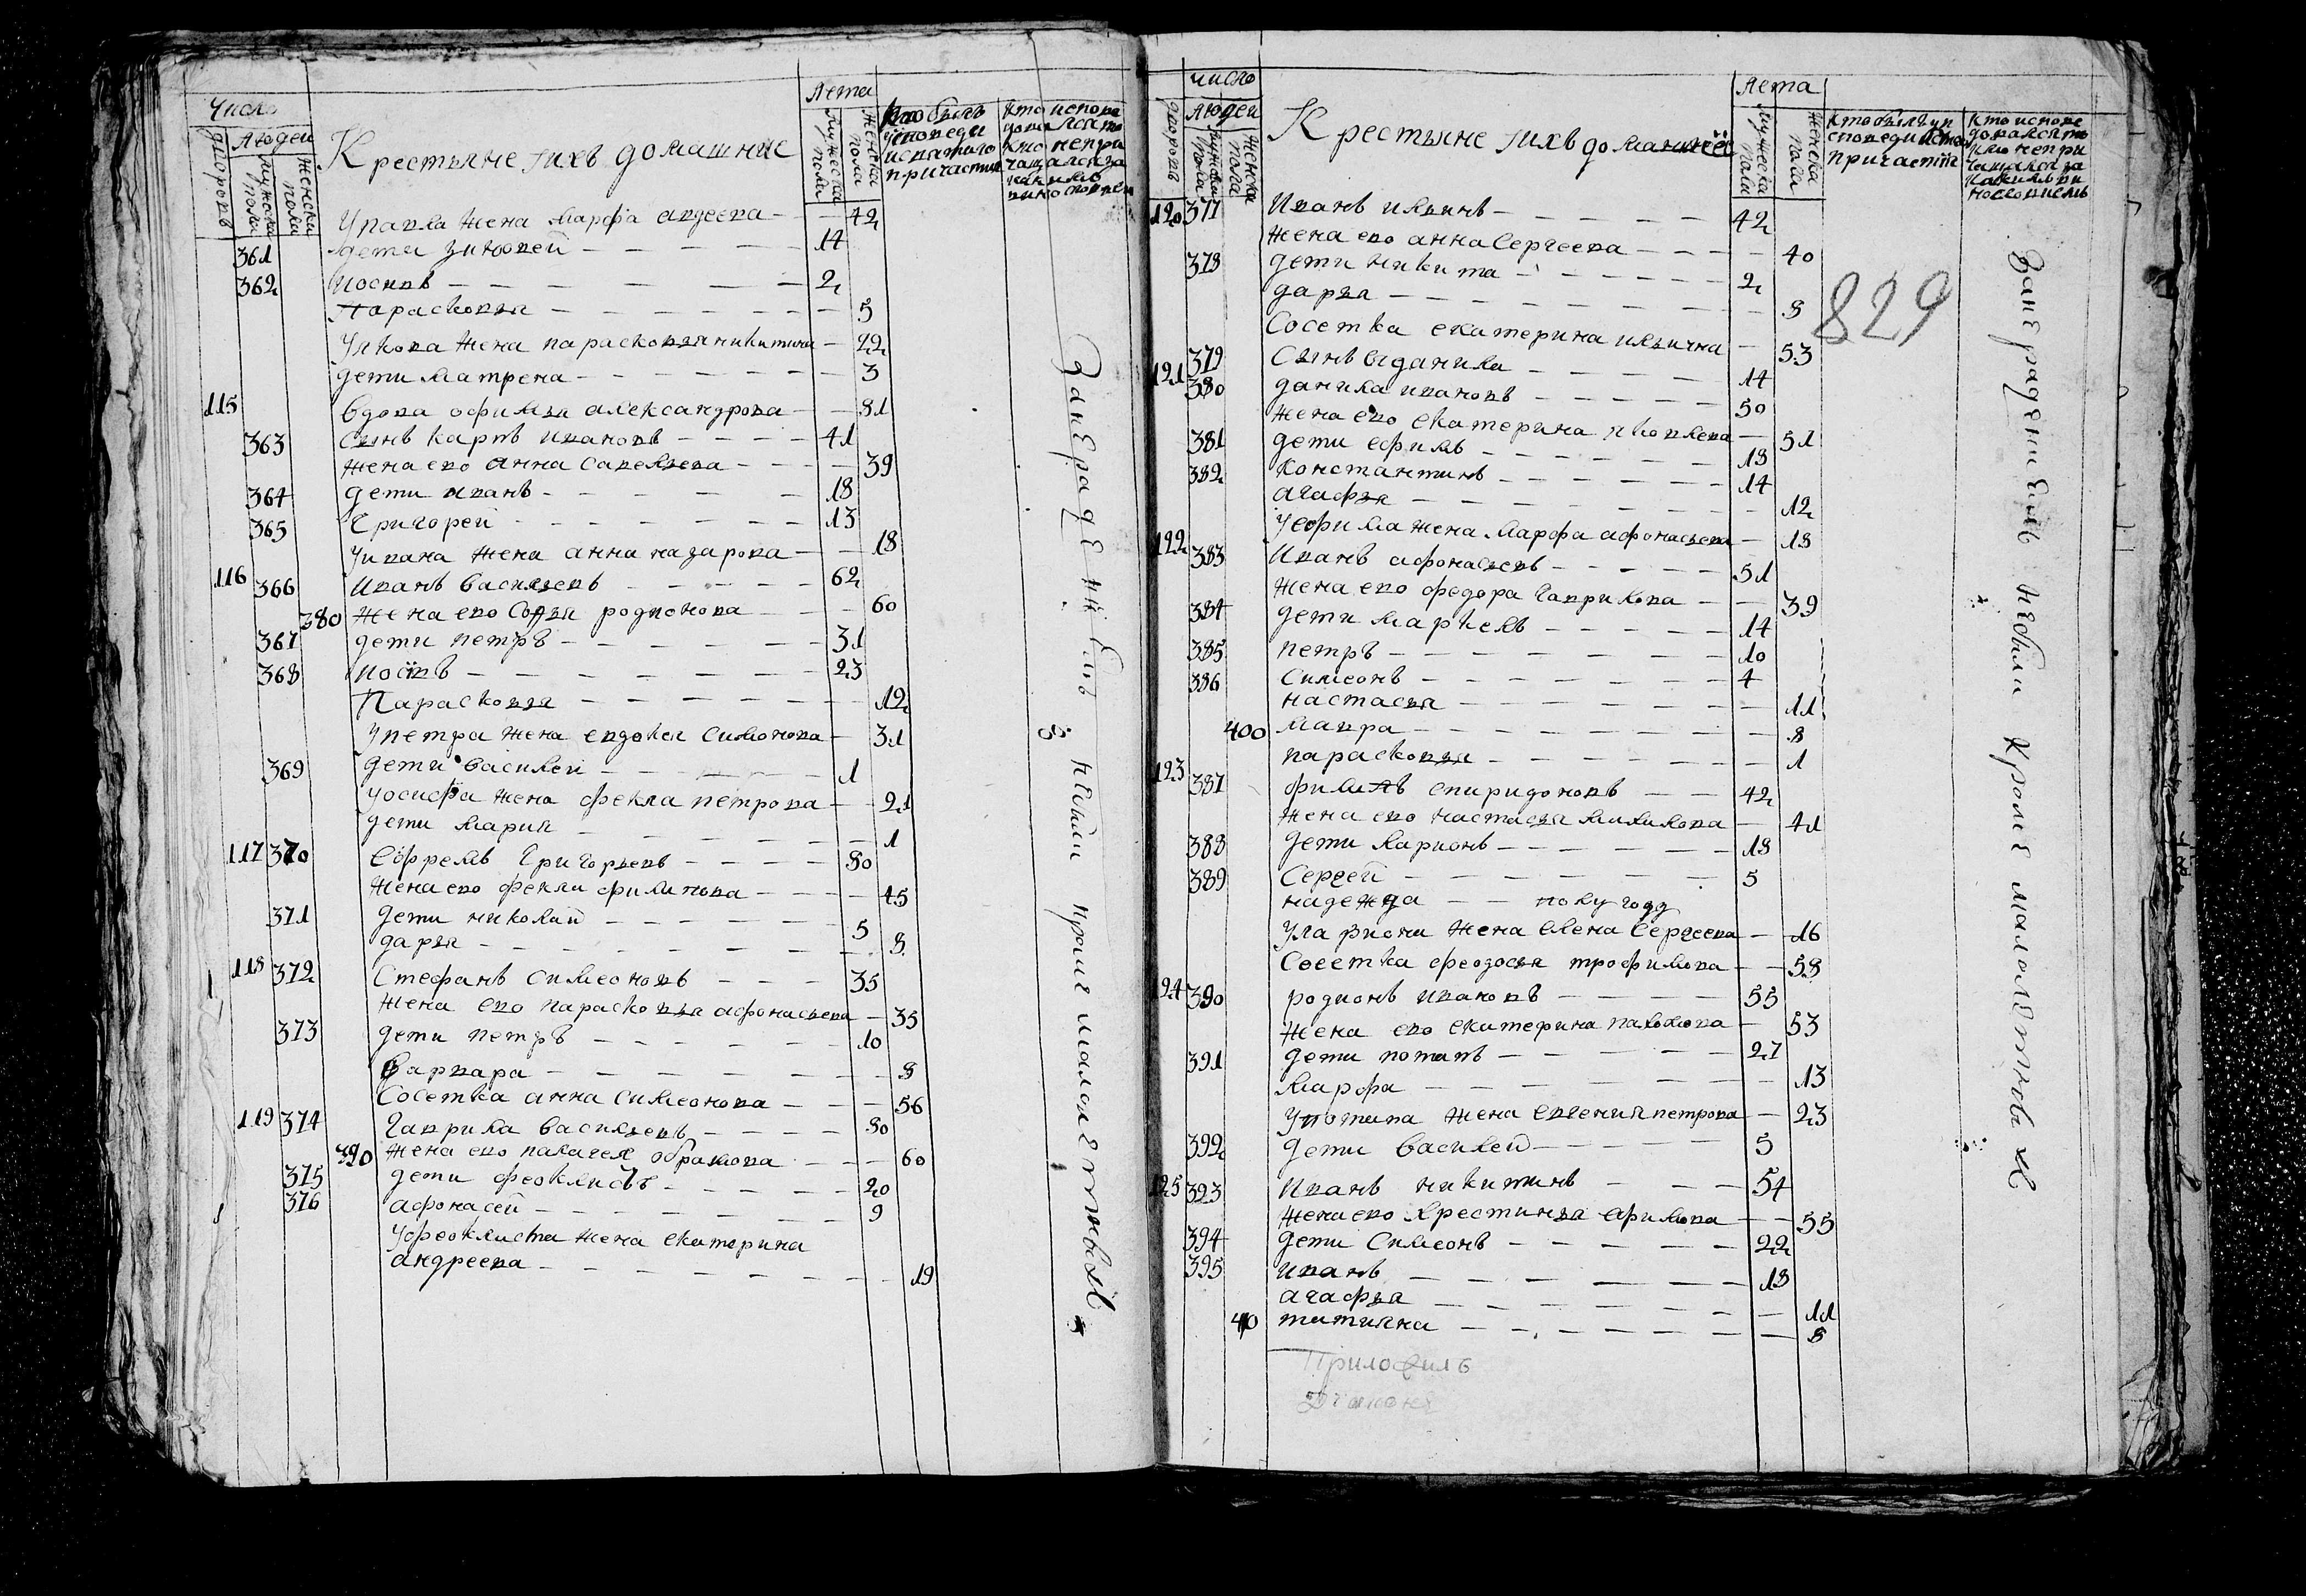 Число
Людей
дворовъ
мужеска пола
женска пола
Крестьяне и ихъ домашние
Лета
мужеска пола
женска пола
Кто былъ
у исповеди
и святаго
причастия
Кто испове
довался а
кто непри
чащался за
какимъ
У павла жена марфа авдеева — 42
361 дети зиновей — 14
362 иосивъ — 2
парасковья — 5
жена парасковья никитина — 22
дети матрена — 3
115 вдова офимья александрова — 81
363 сынъ карпъ ивановъ — 41
жена ево анна савельева — 39
364 дети иванъ — 18
365 григорей — 13
У ивана жена анна назарова — 18
116 366 Иванъ васильевъ — 62
380 жена ево софья родионова — 60
367 дети петръ — 31
368 иосивъ — 23
Парасковья — 12
У петра жена евдокея симонова — 31
369 дети василей — 1
У осифа жена фекла петрова — 21
дети мария — 1
117 370 Ефремъ григорьевъ — 80
жена ево фекла филипова — 45
371 дети николай — 5
дарья — 8
118 372 Стефанъ симеоновъ — 35
жена ево парасковья афонасьева — 35
373 дети петръ — 10
варвара — 8
Сосетка анна симеонова — 56
119 374 Гаврила васильевъ — 80
390 жена ево палагея абрамова — 60
375 дети феоклистъ — 20
376 афонасей — 9
У феоклиста жена екатерина
андреева — 19
За нерадениемъ небыли кроме малолетныхъ
число
людей
дворовъ
мужеска пола
женска пола
Крестьяне и ихъ домашнее
Лета
мужеска пола
женска пола
Кто былъ у и
споведи и святаго
причастия
Кто испове
довался а
кто непри
чащался за
какимъ ви
нословиемъ
829
120 377 Иванъ ильинъ — 42
жена ево анна Сергеева — 40
378 дети никита — 2
дарья — 8
Сосетка екатерина ильична — 53
379 Сынъ ея данила — 14
121 380 данила ивановъ — 50
жена ево екатерина яковлева — 51
381 дети ефимъ — 18
382 константинъ — 14
агафья — 12
У ефима жена марфа афонасьева — 18
122 383 Иванъ афонасьевъ — 51
жена ево федора гаврилова — 39
384 дети маркелъ — 14
385 петръ — 10
386 симеонъ — 4
настасья — 11
400 мавра — 8
парасковья — 1
123 387 филипъ спиридоновъ — 42
жена ево настасья — 41
388 дети ларионъ — 18
389 Сергей — 5
надежда — полугоду
У лариона жена елена Сергеева — 16
Сосетка феодосья трофимова — 58
124 390 родионъ ивановъ — 55
жена ево екатерина пахомова — 53
391 дети потапъ — 27
марфа — 13
У потапа жена евгения петрова — 23
392 дети василей — 5
125 393 Иванъ никитинъ — 54
жена ево крестинья ефимова — 55
394 дети Симеонъ — 22
395 иванъ — 18
агафья — 11
410 татияна — 8
За нерадениемъ небыли кроме малолетныхъ